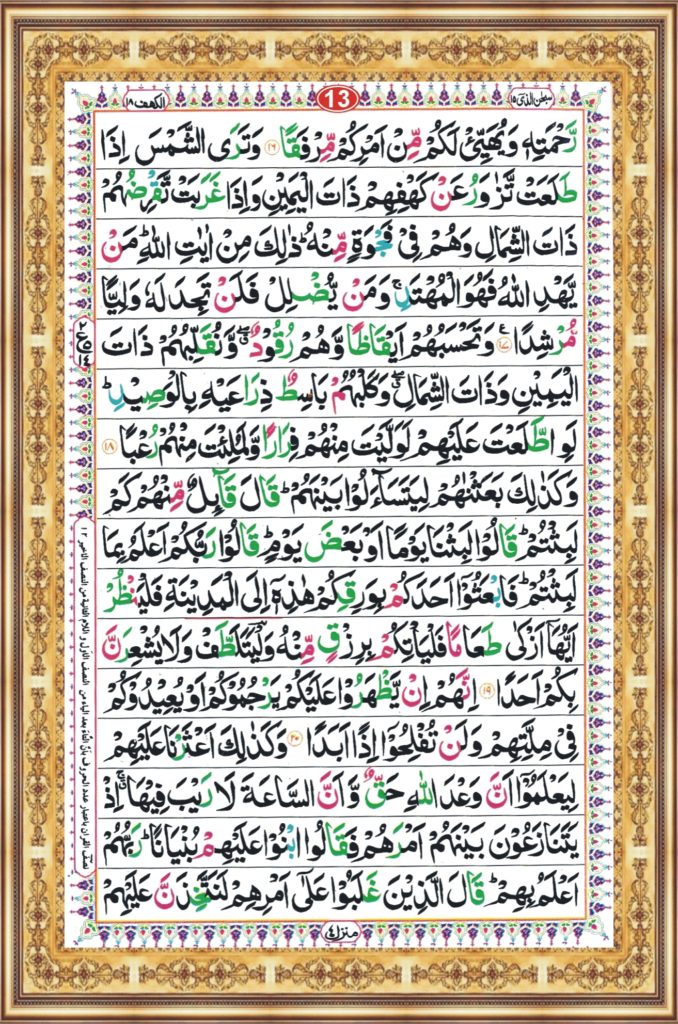 سبحٰن الذیٓ ۱۵
13
الکھف ۱۸
رَّحْمَتِهٖ وَيُهَيِّئْ لَكُمْ مِّنْ اَمْرِكُمْ مِّرْفَقًا ﴿۱۶﴾ وَتَرَى الشَّمْسَ اِذَا
طَلَعَتْ تَّزٰوَرُ عَنْ كَهْفِهِمْ ذَاتَ الْيَمِيْنِ وَاِذَا غَرَبَتْ تَّقْرِضُهُمْ
ذَاتَ الشِّمَالِ وَهُمْ فِيْ فَجْوَةٍ مِّنْهُ ؕ ذٰلِكَ مِنْ اٰيٰتِ اللّٰهِ ؕ مَنْ
يَّهْدِ اللّٰهُ فَهُوَ الْمُهْتَدِ ۚ وَمَنْ يُّضْلِلْ فَلَنْ تَجِدَ لَهٗ وَلِيًّا
مُّرْشِدًا ﴿۱۷﴾ وَتَحْسَبُهُمْ اَيْقَاظًا وَّهُمْ رُقُوْدٌ ۖ وَّنُقَلِّبُهُمْ ذَاتَ
الْيَمِيْنِ وَذَاتَ الشِّمَالِ ۖ وَكَلْبُهُمْ بَاسِطٌ ذِرَاعَيْهِ بِالْوَصِيْدِ ؕ
لَوِ اطَّلَعْتَ عَلَيْهِمْ لَوَلَّيْتَ مِنْهُمْ فِرَارًا وَّلَمُلِئْتَ مِنْهُمْ رُعْبًا ﴿۱۸﴾
وَكَذٰلِكَ بَعَثْنٰهُمْ لِيَتَسَآءَلُوْا بَيْنَهُمْ ؕ قَالَ قَآىِٕلٌ مِّنْهُمْ كَمْ
لَبِثْتُمْ ؕ قَالُوْا لَبِثْنَا يَوْمًا اَوْ بَعْضَ يَوْمٍ ؕ قَالُوْا رَبُّكُمْ اَعْلَمُ بِمَا
لَبِثْتُمْ ؕ فَابْعَثُوْۤا اَحَدَكُمْ بِوَرِقِكُمْ هٰذِهٖۤ اِلَى الْمَدِيْنَةِ فَلْيَنْظُرْ
اَيُّهَاۤ اَزْكٰى طَعَامًا فَلْيَاْتِكُمْ بِرِزْقٍ مِّنْهُ وَلْيَتَلَطَّفْ وَلَا يُشْعِرَنَّ
بِكُمْ اَحَدًا ﴿۱۹﴾ اِنَّهُمْ اِنْ يَّظْهَرُوْا عَلَيْكُمْ يَرْجُمُوْكُمْ اَوْ يُعِيْدُوْكُمْ
فِيْ مِلَّتِهِمْ وَلَنْ تُفْلِحُوْۤا اِذًا اَبَدًا ﴿۲۰﴾ وَكَذٰلِكَ اَعْثَرْنَا عَلَيْهِمْ
لِيَعْلَمُوْۤا اَنَّ وَعْدَ اللّٰهِ حَقٌّ وَّاَنَّ السَّاعَةَ لَا رَيْبَ فِيْهَا ۚ اِذْ
يَتَنَازَعُوْنَ بَيْنَهُمْ اَمْرَهُمْ فَقَالُوا ابْنُوْا عَلَيْهِمْ بُنْيَانًا ؕ رَبُّهُمْ
اَعْلَمُ بِهِمْ ؕ قَالَ الَّذِيْنَ غَلَبُوْا عَلٰۤى اَمْرِهِمْ لَنَتَّخِذَنَّ عَلَيْهِمْ
منزل ٤